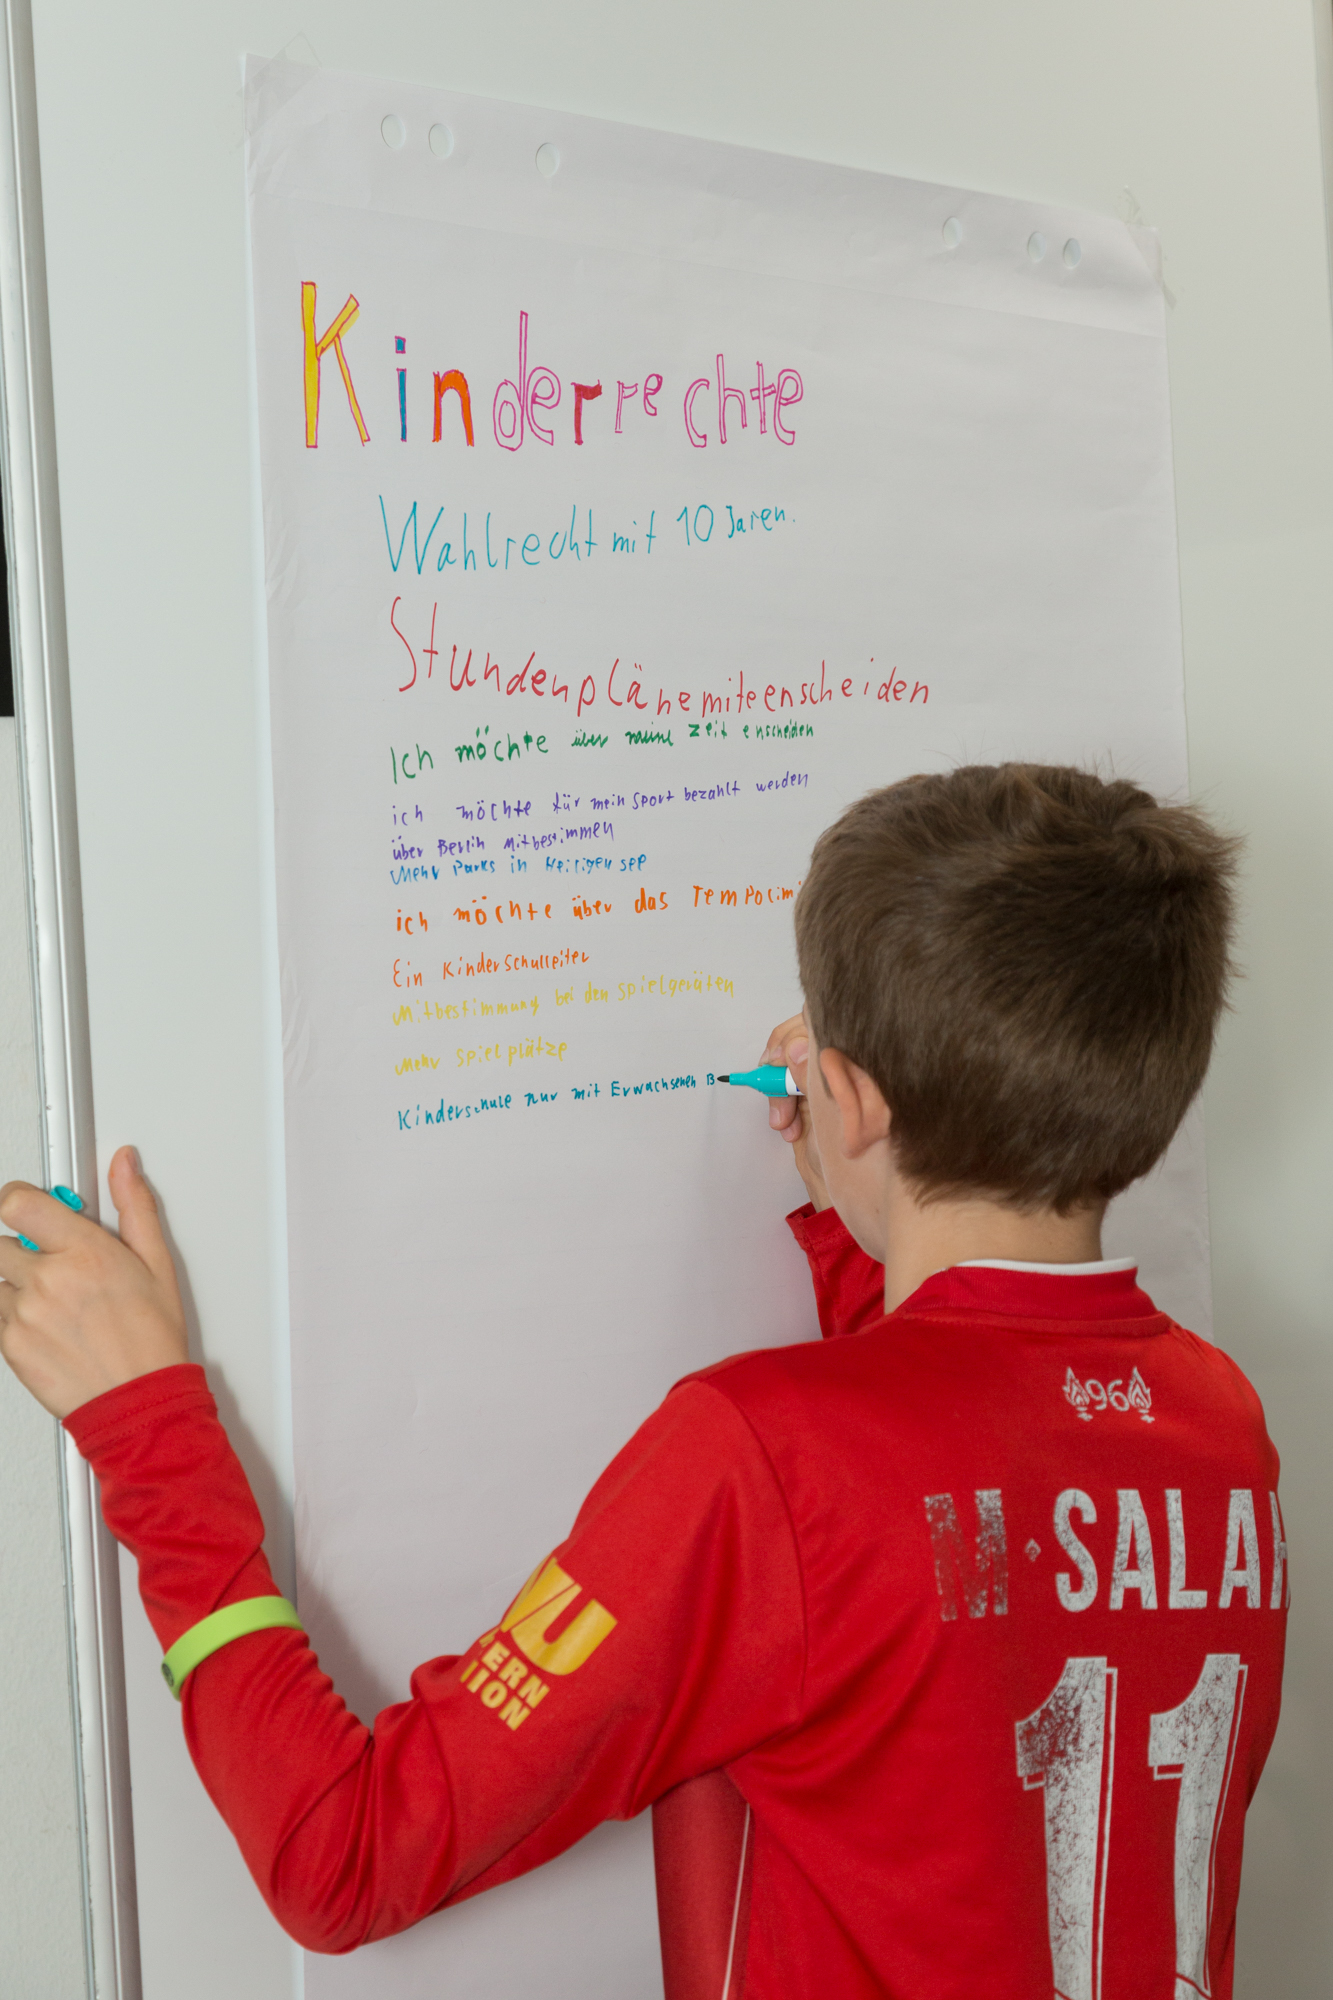 Kinderrechte
Wahlrecht mit 10 Jaren.
Stundenpläne miteenscheiden
Ich möchte über meine zeit enscheiden
ich möchte für mein Sport bezahlt werden
über Berlin Mitbestimmen
Mehr Parks in Heiligensee
ich möchte über das Tempolimi
Ein Kinderschulleiter
Mitbestimmung bei den Spielgeräten
Mehr Spielplätze
Kinderschule nur mit Erwachsenen B
96
M·SALAH
11
WU
ERN
ION